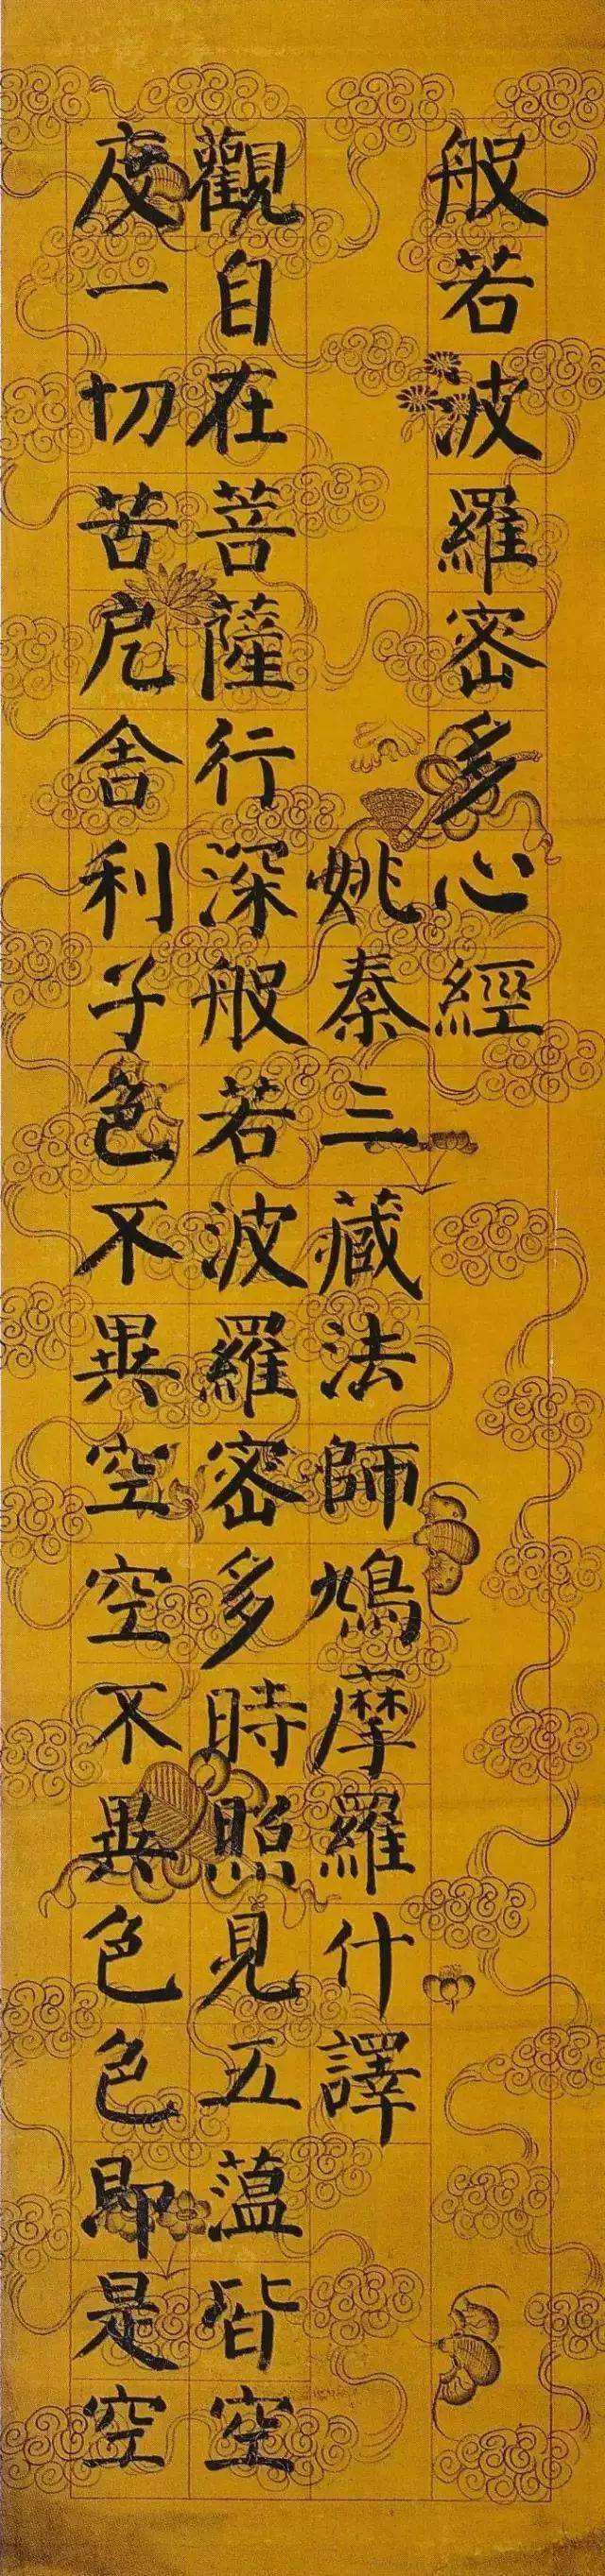 般若波羅密多心經
姚秦三藏法師鳩摩羅什譯
觀自在菩薩行深般若波羅密多時照見五蕰皆空
度一切苦厄舍利子色不異空空不異色色即是空